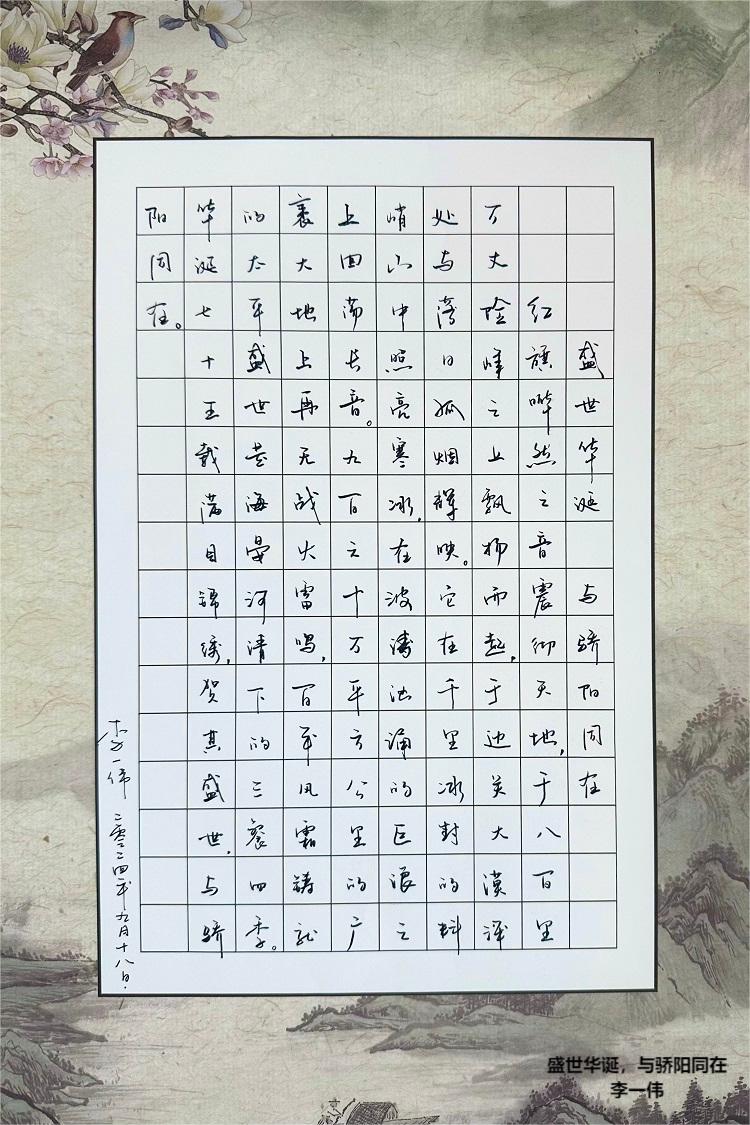 盛世华诞 与骄阳同在
红旗哗然之音震彻天地,于八百里
万丈险峰之上飘扬而起,于边关大漠深
处与落日孤烟辉映。它在千里冰封的料
峭山中照亮寒冰,在波涛汹涌的巨浪之
上回荡长音。九百六十万平方公里的广
袤大地上再无战火雷鸣,百年风霜铸就
的太平盛世是海晏河清下的三餐四季。
华诞七十五载满目锦绣,贺其盛世,与骄
阳同在。
李一伟 二零二四年九月十八日.
盛世华诞，与骄阳同在
李一伟